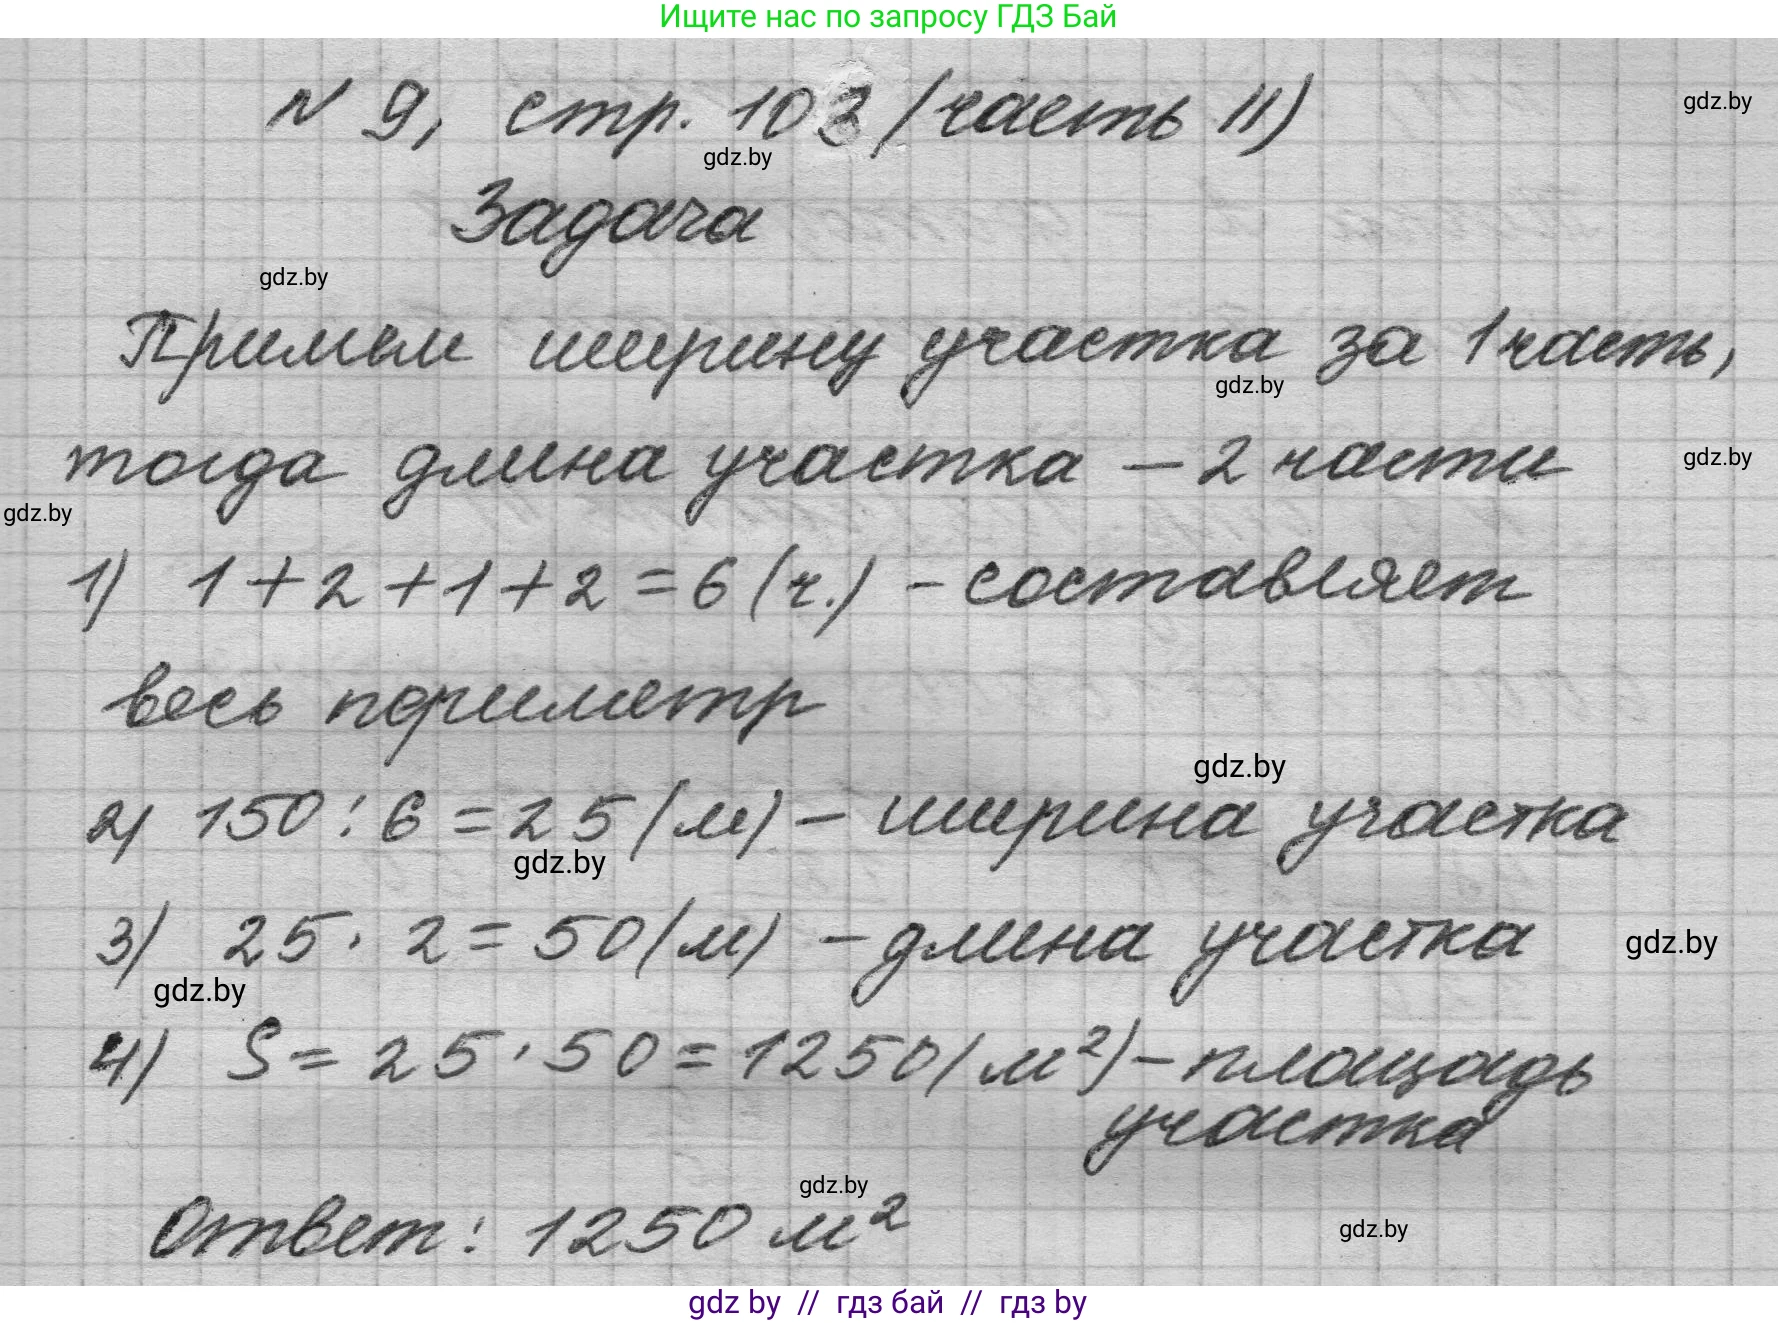 Ищите нас по запросу ГДЗ Бай
№ 9, стр. 103 (часть II)
gdz.by
gdz.by
Задача
gdz.by
Примем ширину участка за 1 часть,
gdz.by
тогда длина участка – 2 части
gdz.by
gdz.by
1) 1 + 2 + 1 + 2 = 6 (ч.) – составляет
весь периметр
gdz.by
2) 150 : 6 = 25 (м) – ширина участка
gdz.by
3) 25 · 2 = 50 (м) – длина участка
gdz.by
gdz.by
4) S = 25 · 50 = 1250 (м²) – площадь
участка
gdz.by
Ответ: 1250 м²
gdz.by
gdz by // гдз бай // гдз by